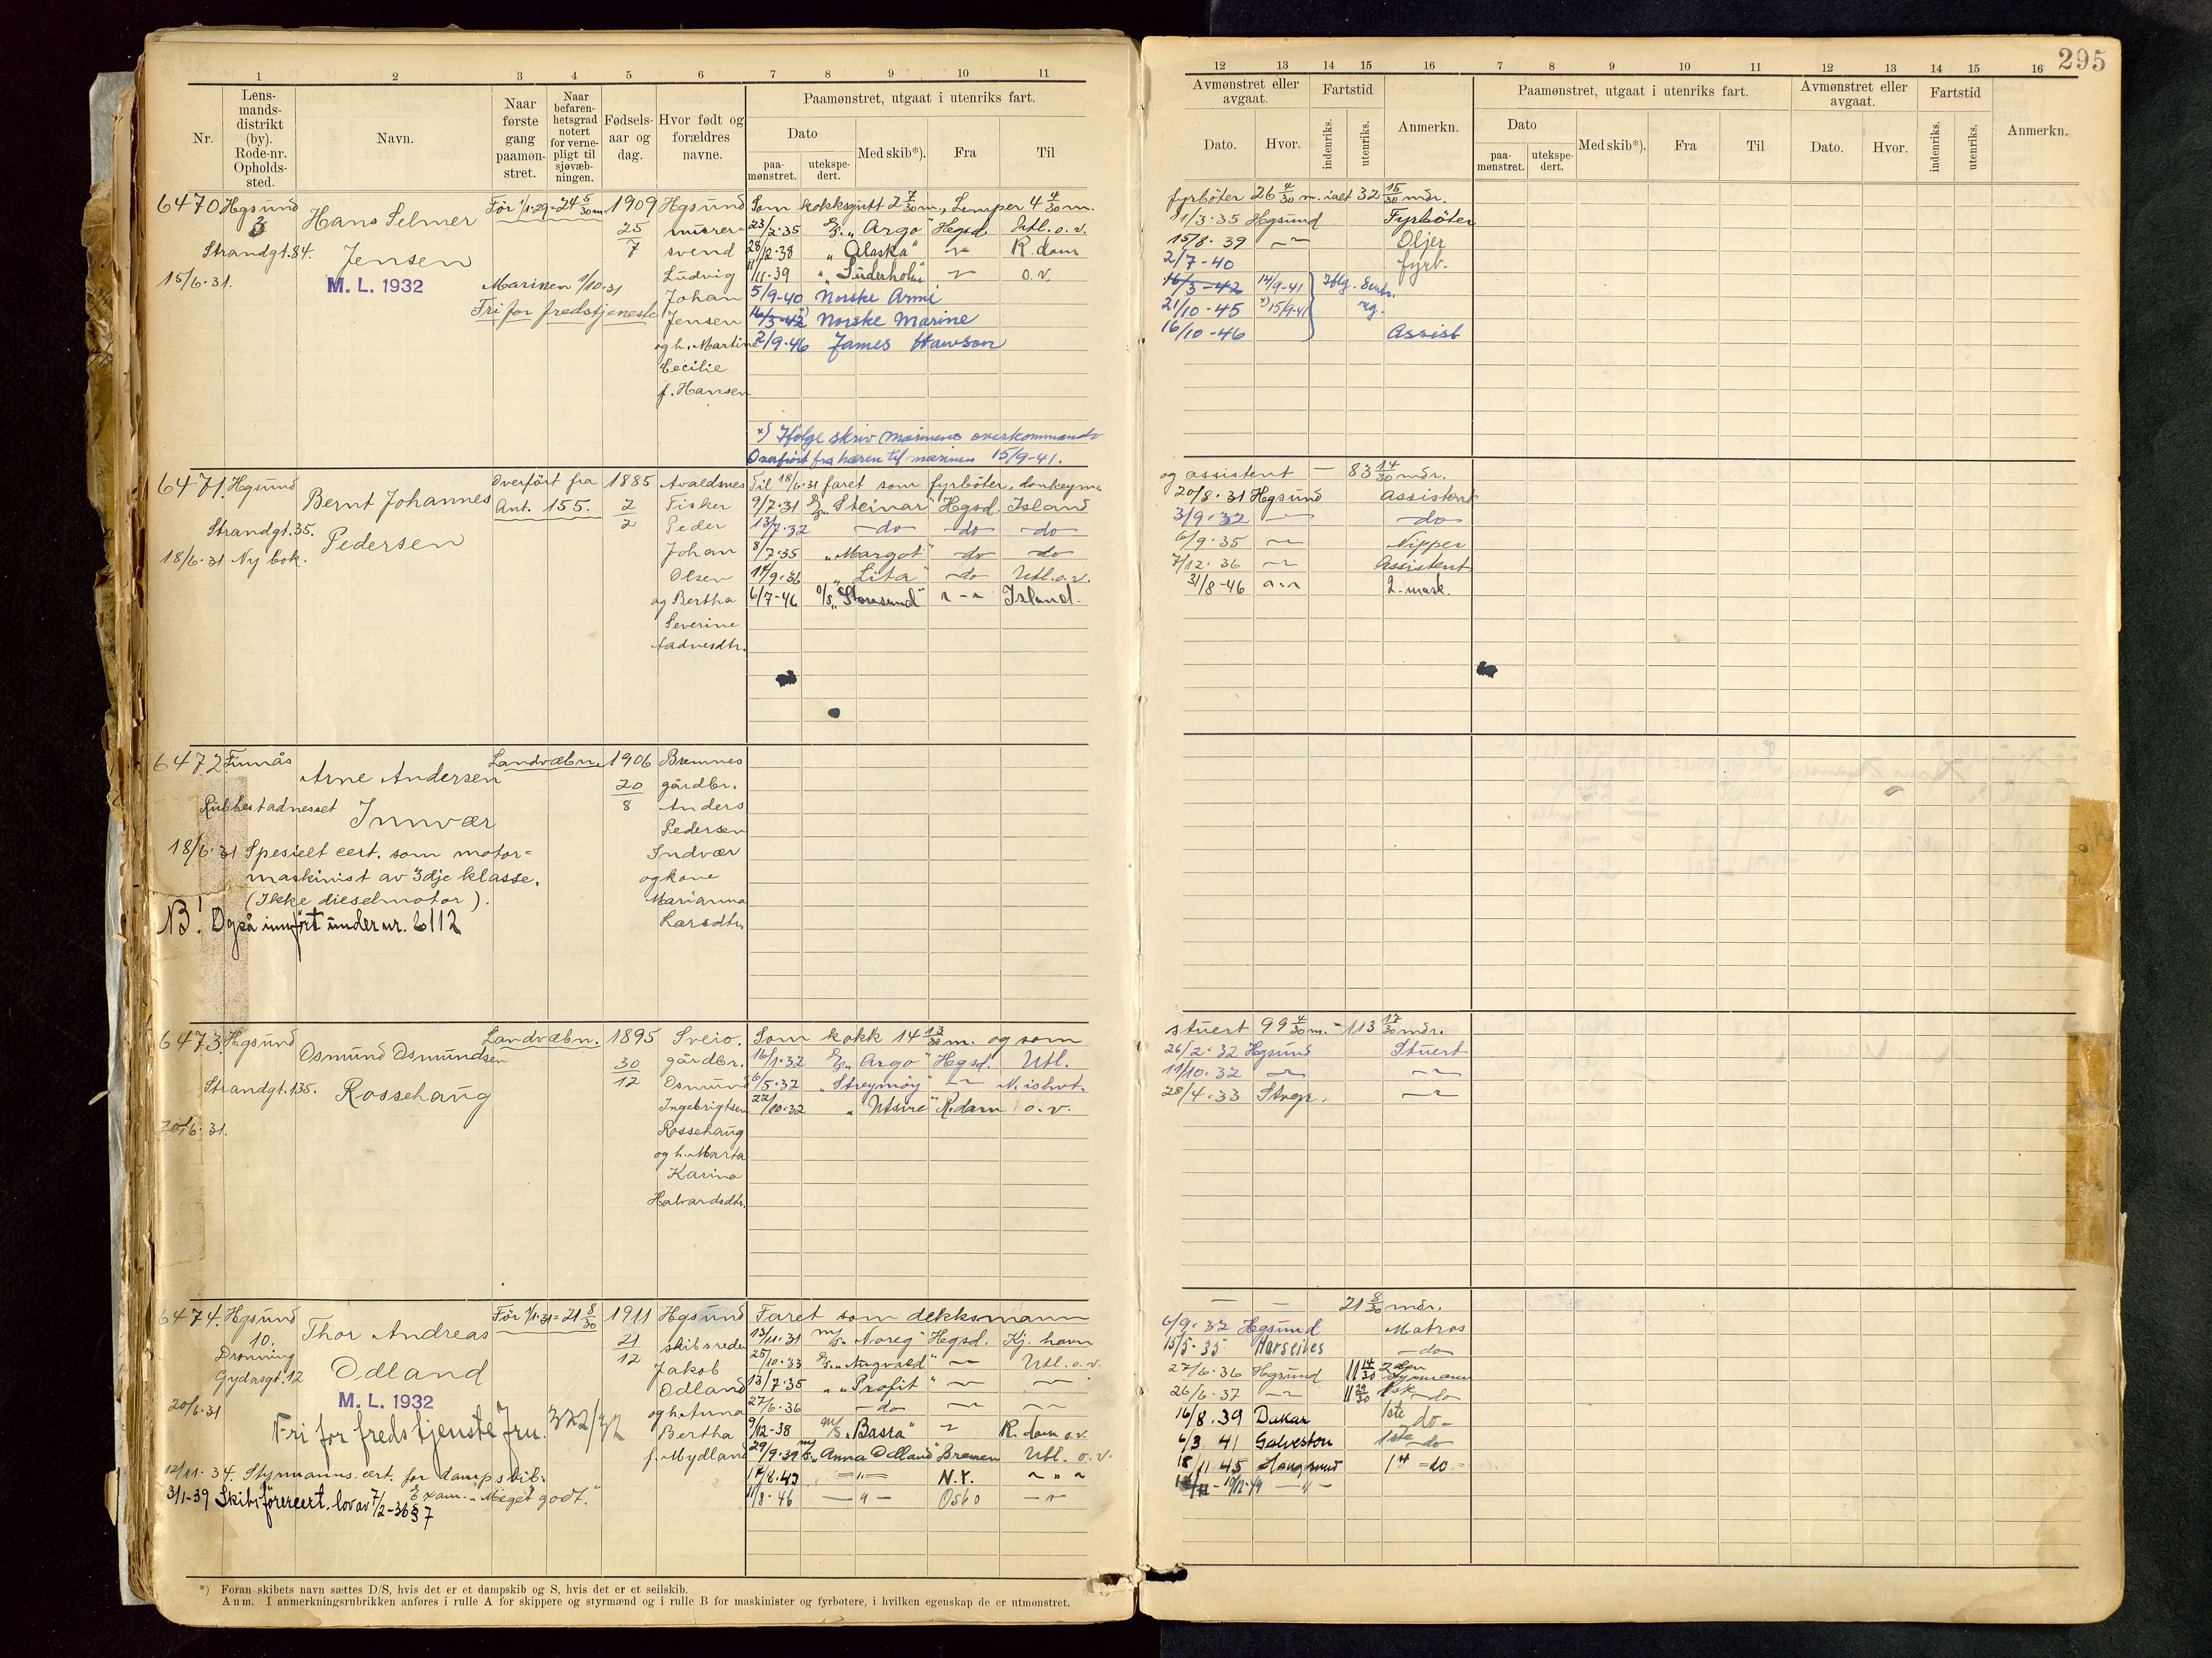 295
1 2 3 4 5 6 7 8 9 10 11
12 13 14 15 16 7 8 9 10 11 12 13 14 15 16
Nr.
Lens-
mands-
distrikt
(by).
Rode-nr.
Opholds-
sted.
Navn.
Naar
første
gang
paamøn-
stret.
Naar
befaren-
hetsgrad
notert
for verne-
pligt til
sjøvæb-
ningen.
Fødsels-
aar og
dag.
Hvor født og
forældres
navne.
Paamønstret, utgaat i utenriks fart.
Dato
paa-
mønstret.
utekspe-
dert.
Med skib*).
Fra
Til
Avmønstret eller
avgaat.
Dato.
Hvor.
Fartstid
indenriks.
utenriks.
Anmerkn.
Paamønstret, utgaat i utenriks fart.
Dato
paa-
mønstret.
utekspe-
dert.
Med skib*).
Fra
Til
Avmønstret eller
avgaat.
Dato.
Hvor.
Fartstid
indenriks.
utenriks.
Anmerkn.
6470 Hgsund
3
Strandgt. 84.
15/6.31.
Hans Selmer
Jensen
M. L. 1932
Før 1/1.29 = 24 5/30 m
Marinen 1/10.31
Fri for fredstjeneste
1909
25
7
Hgsund
murer-
svend
Ludvig
Johan
Jensen
og h. Martine
Cecilie
f. Hansen
Som kokksgutt 2 7/30 m., Lemper 4 4/30 m.
fyrbøter 26 4/30 m. ialt 32 15/30 mdr.
23/2.35 "Argo" Hgsd. Utl. o. v. 11/3.35 Hgsund Fyrbøter
28/12.38 "Alaska" R.dam 15/8.39 Oljer
11/11.39 "Suderholm" o.v. 2/7-40 fyrb.
5/9-40 Norske Armé 16/3-42 14/9-41
16/3-42 Norske Marine 21/10-45 x) 15/9-41
2/9-46 James Hawson 16/10-46 Assist
x) Ifølge skriv marinens overkommando
Overført fra hæren til marinen 15/9-41.
6471. Hgsund
Strandgt. 35.
18/6.31 Ny bok.
Bernt Johannes
Pedersen
Overført fra
Ant. 155.
1885
2
2
Avaldsnes
Fisker
Peder
Johan
Olsen
og Bertha
Severine
Til 18/6.31 faret som fyrbøter, donkeym.
og assistent — 83 14/30 mdr.
9/7.31 "Steinar" Hgsd. Island 20/8.31 Hgsund Assistent
13/7.32 —do— —do— —do— 3/9.32 —do—
8/7.35 "Margot" —do— —do— 6/9.35 Nipper
14/9.36 "Lita" —do— Utl. o. v. 7/12.36 Assistent
6/7-46 Island. 31/8-46 2. mask.
6472. Finnås
Rubbestadnesset
Arne Andersen
Innvær
Landvæbn.
1906
20
8
Bremnes
gårdbr.
Anders
Pedersen
Indvær
og kone
Marianna
Larsdtr.
18/6.31 Spesielt cert. som motor-
maskinist av 3dje klasse.
(Ikke dieselmotor).
NB! Også innført under nr. 6112
6473. Hgsund
Strandgt. 135.
20/6.31.
Osmund Osmundsen
Rossehaug
Landvæbn.
1895
30
12
Sveio.
gårdbr.
Osmund
Ingebrigtsen
Rossehaug
og h. Marta
Karina
Halvardsdtr.
Som kokk 14 13/30 m. og som
stuert 99 4/30 m. - 113 17/30 mdr.
16/1.32 "Argo" Hgsd. Utl. 26/2.32 Hgsund Stuert
6/5.32 "Streymøy" N. ishvt. 11/10.32
22/10.32 "Utsire" R.dam o. v. 28/4.33 Stvgr.
6474. Hgsund
10.
Dronning
Gydasgt. 12
20/6.31
Thor Andreas
Odland
M. L. 1932
Før 1/1.31 = 21 8/30
Fri for fredstjeneste Jrn. 322/32
1911
21
12
Hgsund
skibsreder
Jakob
Odland
og h. Anna
Bertha
f. Mydland
12/11.34. Styrmanns cert. for dampskib.
Exam. "Meget godt."
3/1-39 Skibsførercert. lov av 7/2-36 § 7
Faret som dekksmann
— — 21 8/30 mdr.
13/11.31 m/s "Noreg" Hgsd. Kj. havn 6/9.32 Hgsund Matros
25/10.33 "Augvald" Utl. o. v. 15/5.35 Marseilles —do—
13/7.35 "Profit" 27/6.36 Hgsund 11 14/30 2den Styrmann
27/6.36 —do— 26/6.37 11 29/30 —do
9/12-38 m/s "Basra" R.dam o.v. 16/8.39 Dakar 1ste do—
29/9.39 m/s "Anna Odland" Bremen Utl. o. v. 6/3 41 Galveston 1ste —do
17/8.43 —"— N.Y. 18/11.45 Haugesund 1st —do.—
11/8.46 —"— Oslo —"— 19/12.49 —"—
*) Foran skibets navn sættes D/S, hvis det er et dampskib og S, hvis det er et seilskib.
Anm. I anmerkningsrubrikken anføres i rulle A for skippere og styrmænd og i rulle B for maskinister og fyrbøtere, i hvilken egenskap de er utmønstret.